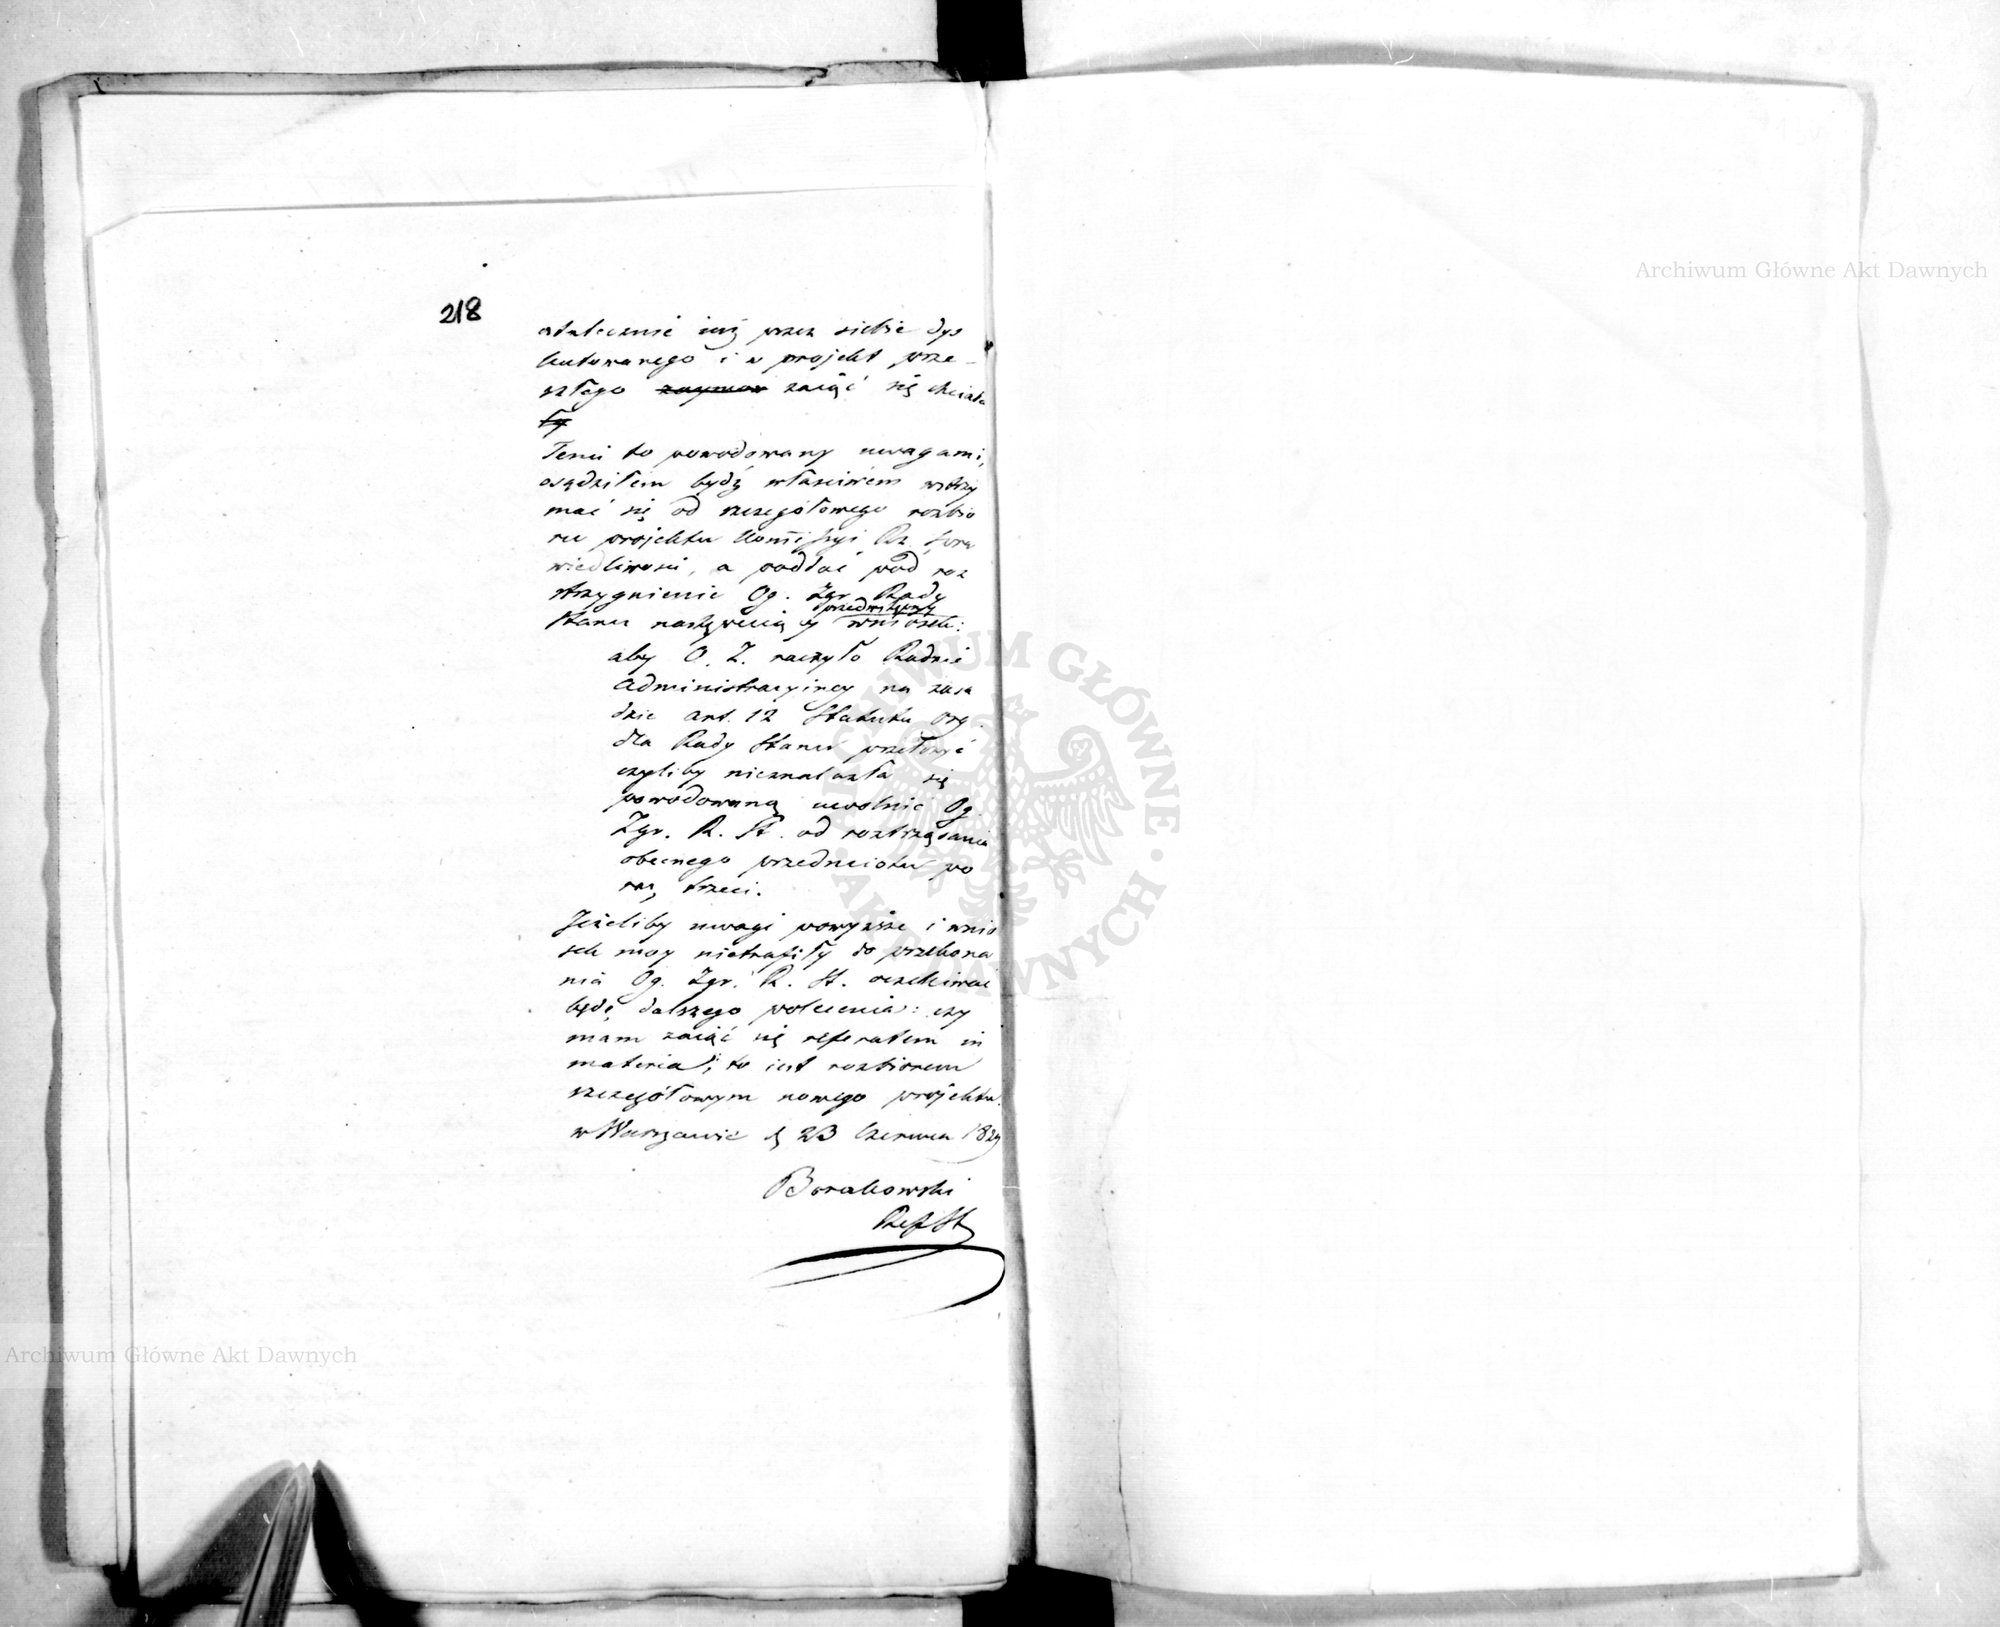 218
ostatecznie iuż przez siebie dys
kutowanego i w projekt prze-
szłego zaiąć się chciała
by
Temi to powodowany uwagami,
osądziłem bydź właściwém wstrzy
mać się od szczegółowego rozbio
ru projektu Kommissyi Rz. Spra
wiedliwości, a poddać pod roz
strzygnienie Og. Zgr. Rady
Stanu następuiący przedwstępny wniosek:
aby O. Z. raczyło Radzie
Administracyiney na zasa
dzie art. 12 Statutu Org.
dla Rady Stanu przełożyć
czyliby nieznalazła się
powodowaną uwolnić Og.
Zgr. R. St. od roztrząsania
obecnego przedmiotu po
raz trzeci.
Jeżeliby uwagi powyższe i wnio
sek moy nietrafiły do przekona
nia Og. Zgr. R. St. oczekiwać
będę dalszego polecenia: czy
mam zaiąć się referatem in
materia, to iest rozbiorem
szczegółowym nowego projektu.
w Warszawie d. 23 Czerwca 1829
Borakowski
Ref St
Archiwum Główne Akt Dawnych
Archiwum Główne Akt Dawnych
ARCHIWUM GŁÓWNE · AKT DAWNYCH ·